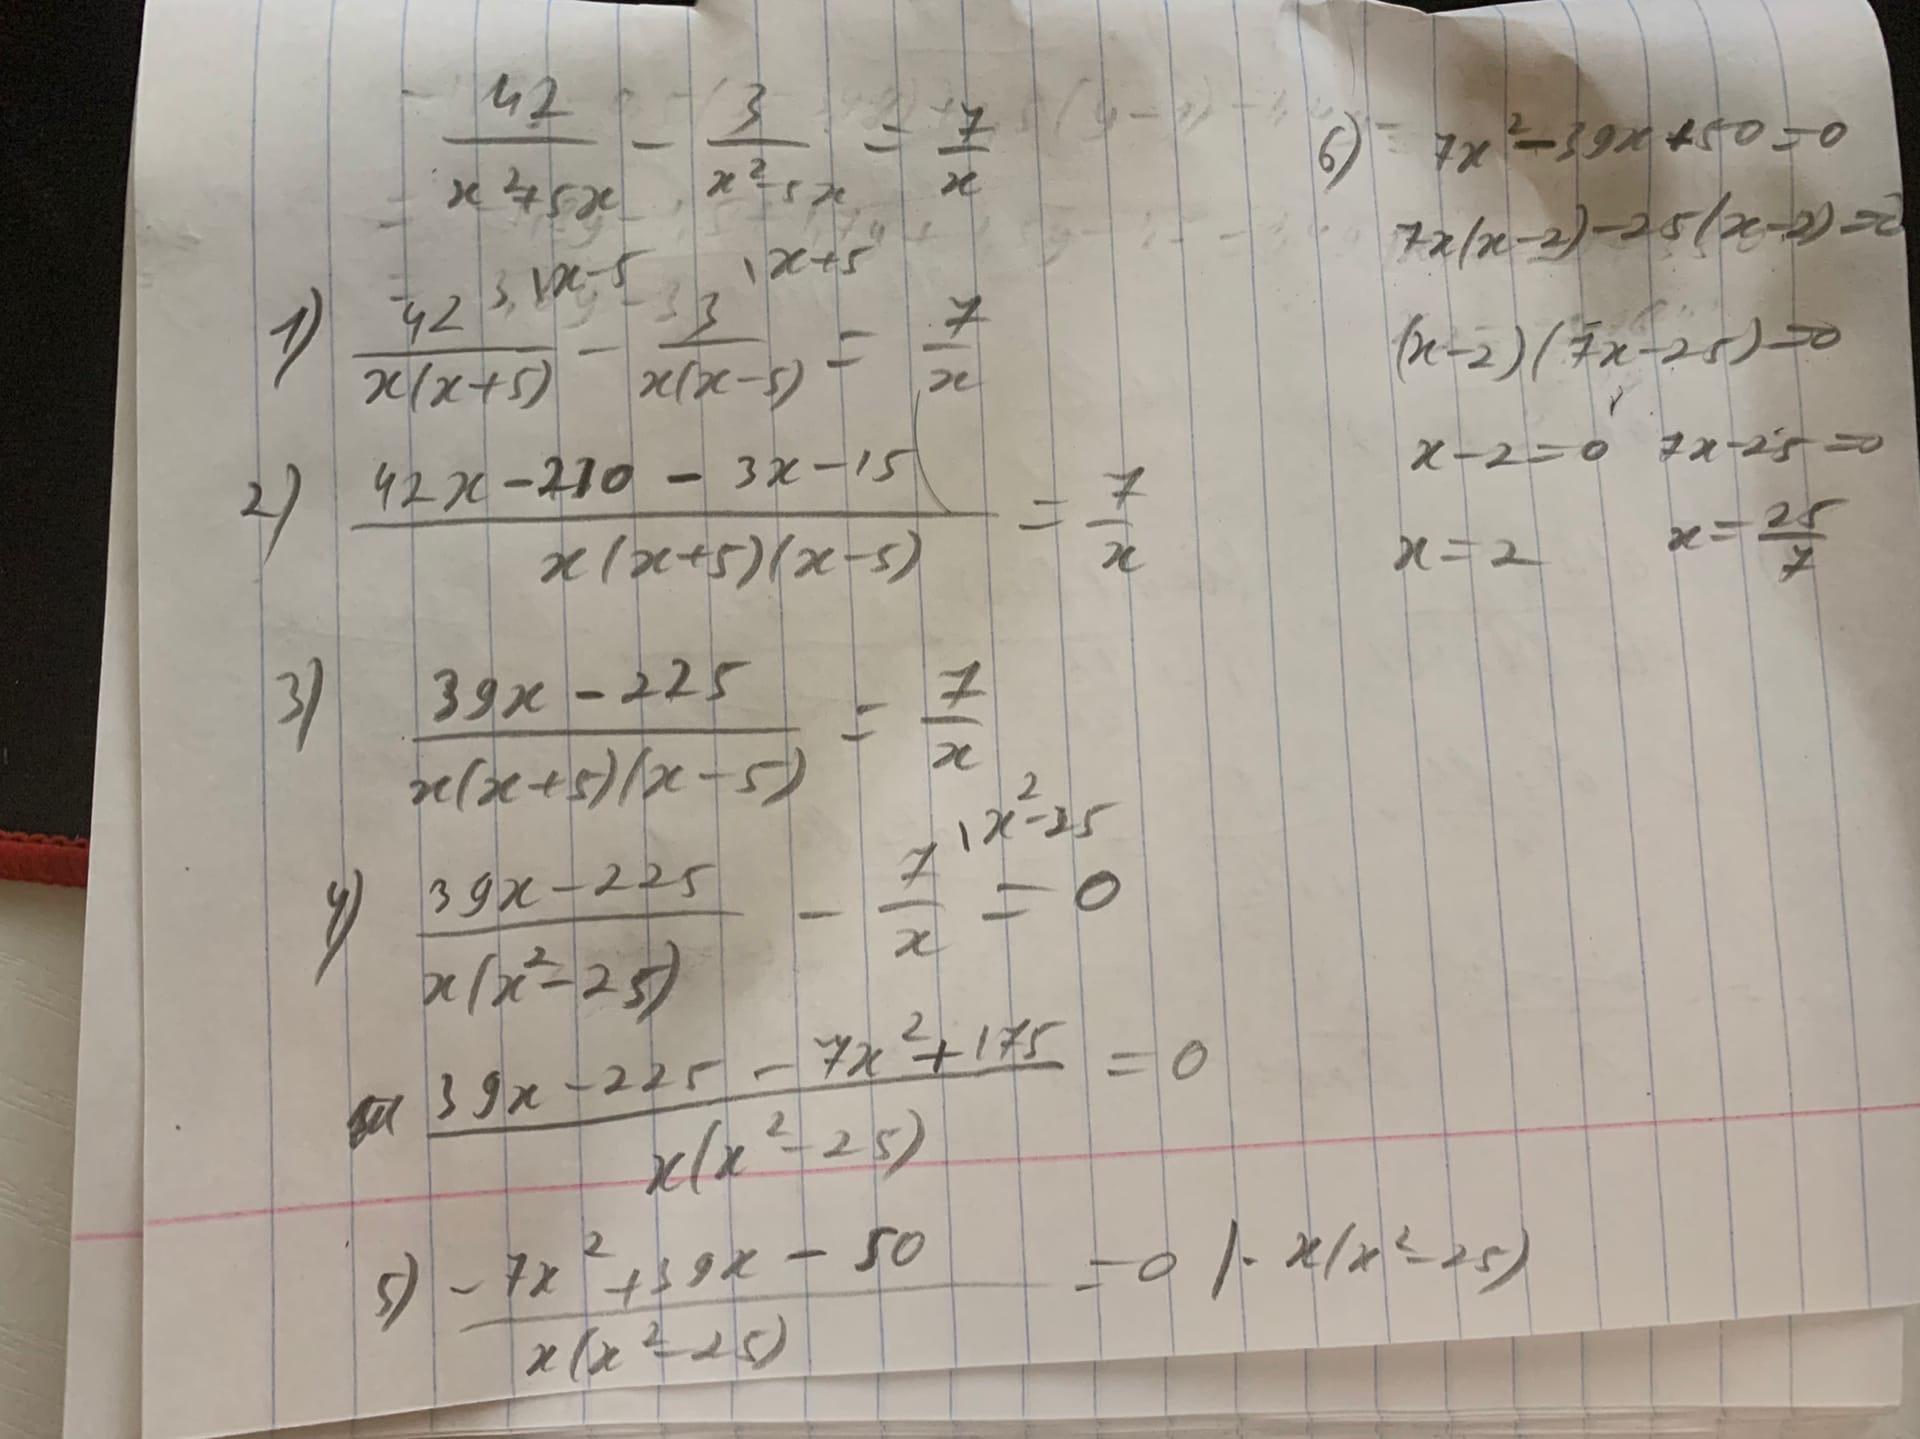 42/(x²+5x) - 3/(x²-5x) = 7/x
1) 42/(x(x+5)) \x-5 - 3/(x(x-5)) \x+5 = 7/x
2) (42x - 210 - 3x - 15)/(x(x+5)(x-5)) = 7/x
3) (39x - 225)/(x(x+5)(x-5)) = 7/x
4) (39x - 225)/(x(x²-25)) - 7/x \x²-25 = 0
(39x - 225 - 7x² + 175)/(x(x²-25)) = 0
5) (-7x² + 39x - 50)/(x(x²-25)) = 0 |· x(x²-25)
6) 7x² - 39x + 50 = 0
7x(x-2) - 25(x-2) = 0
(x-2)(7x-25) = 0
x-2=0 7x-25=0
x=2 x=25/7